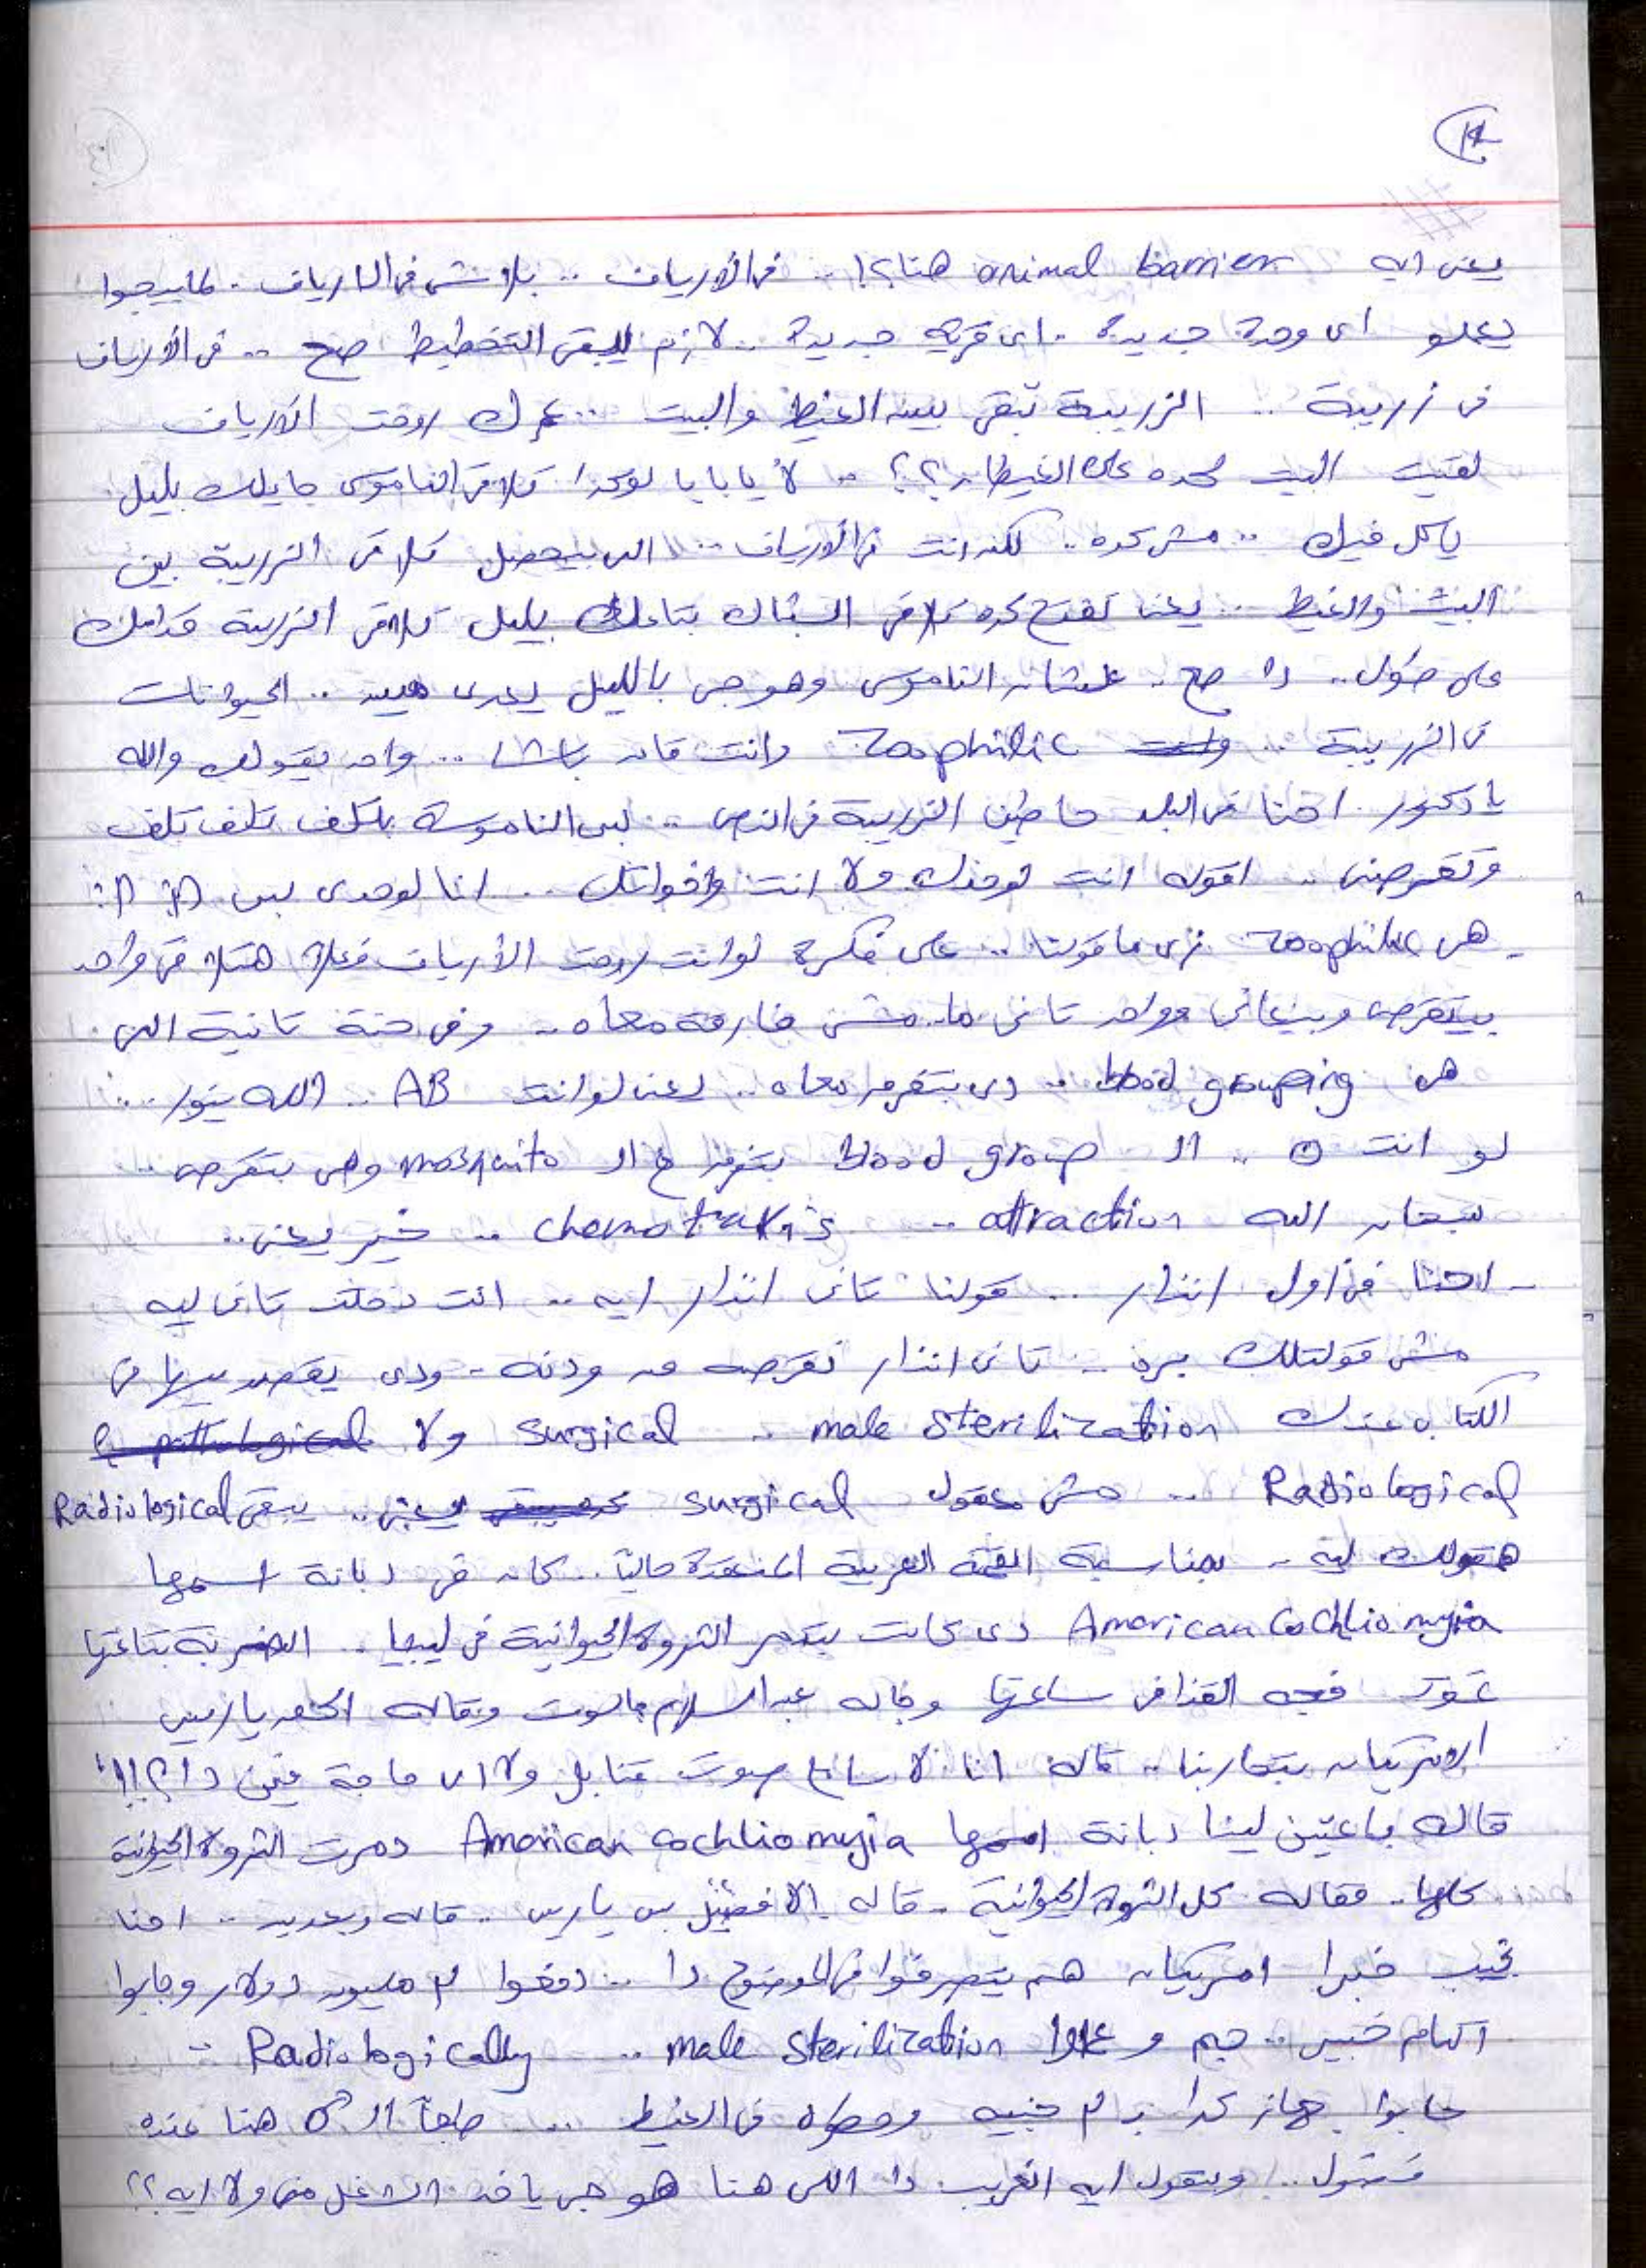 يعنى ايه animal barrier هنا؟! .. فى الأرياف .. بلاش فى الارياف . لما ييجوا
يعملو اى وحدة جديدة . اى قرية جديدة .. لازم يبقى التخطيط صح .. فى الأرياف
فى زريبة .. الزريبة تبقى بين الغيط والبيت .. عمرك روحت الأرياف
لقيت البيت لوحده على الغيطان؟؟ .. لأ يا بابا لو كدا تلاقى الناموس جايلك بليل
ياكل فيك .. مش كده .. لكن انت فى الأرياف .. اللى بيحصل تلاقى الزريبة بين
البيت والغيط .. يعنى تفتح كده تلاقى الشباك بتاعك بليل تلاقى الزريبة قدامك
على طول .. دا صح .. علشان الناموس وهو جى بالليل يعدى مين .. الحيوانات
فى الزريبة .. Zoophilic وانت قاعد باشا .. واحد يقولى والله
يا دكتور احنا فى البلد حاطين الزريبة فى النص .. بس الناموسة بتلف تلف تلف
وتقرصنى .. اقوله انت لوحدك ولا انت واخواتك .. انا لوحدى بس
هى zoophilic زى ما قولنا .. على فكرة لو انت روحت الأرياف فعلا هتلاقى واحد
بيتقرص وبيعانى وواحد تانى ما مش فارقة معاه .. وفى حتة تانية اللى
هى blood grouping .. دى بتفرق معاه .. يعنى لو انت AB .. الله ينور ..
لو انت O .. الـ blood group بتفرق مع الـ mosquito وهى بتقرص ..
سبحان الله attraction .. chemotaxis .. خير يعنى ..
- احنا فى اول انذار .. قولنا تانى انذار ايه .. انت دخلت تانى ليه
مش قولتلك بره .. تانى انذار تقرصه من ودنه - ودى يقصد بيها فى
الكتاب عندك male sterilization .. surgical ولا pathological
Radiological .. مش معقول surgical يعنى .. يبقى Radiological
هقولك ليه .. بمناسبة القمة العربية المنعقدة حاليا .. كان فى دبانة اسمها
American Cochliomyia دى كانت بتدمر الثروة الحيوانية فى ليبيا .. الضربة بتاعتها
القذافى ساعتها وجاله عبد السلام جالوت وقاله الحق يا ريس
الامريكان بتحاربنا .. قاله انا لا سامع صوت قنابل ولا اى حاجة فين دا؟!!
قاله باعتين لينا دبانة اسمها American cochliomyia دمرت الثروة الحيوانية
كلها .. فقاله كل الثروة الحيوانية - قاله إلا بس يا ريس .. قاله وبعدين .. احنا
نجيب خبرا امريكان هم يتصرفوا فى الموضوع دا .. دفعوا مليون دولار وجابوا
اكمام خبير .. جم و عملوا male sterilization .. Radiologically -
جابوا جهاز كدا جنيه وحطوه فى الغيط .. طبعا الـ ♂ هنا عنده
فضول .. وبيقول ايه الغريب دا اللى هنا هو جى ياخد الشغل منى ولا ايه؟؟